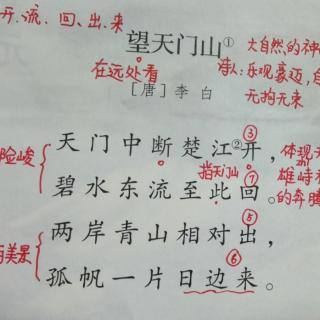 开、流、回、出、来
望天门山①
大自然的神
在远处看
诗人:乐观豪迈,自
[唐]李白
无拘无束
③
天门中断楚江②开,
体现天
险峻
指天门山
⑦
雄峙
碧水东流至此回。
的奔腾
⑤
两岸青山相对出,
美景
⑥
孤帆一片日边来。